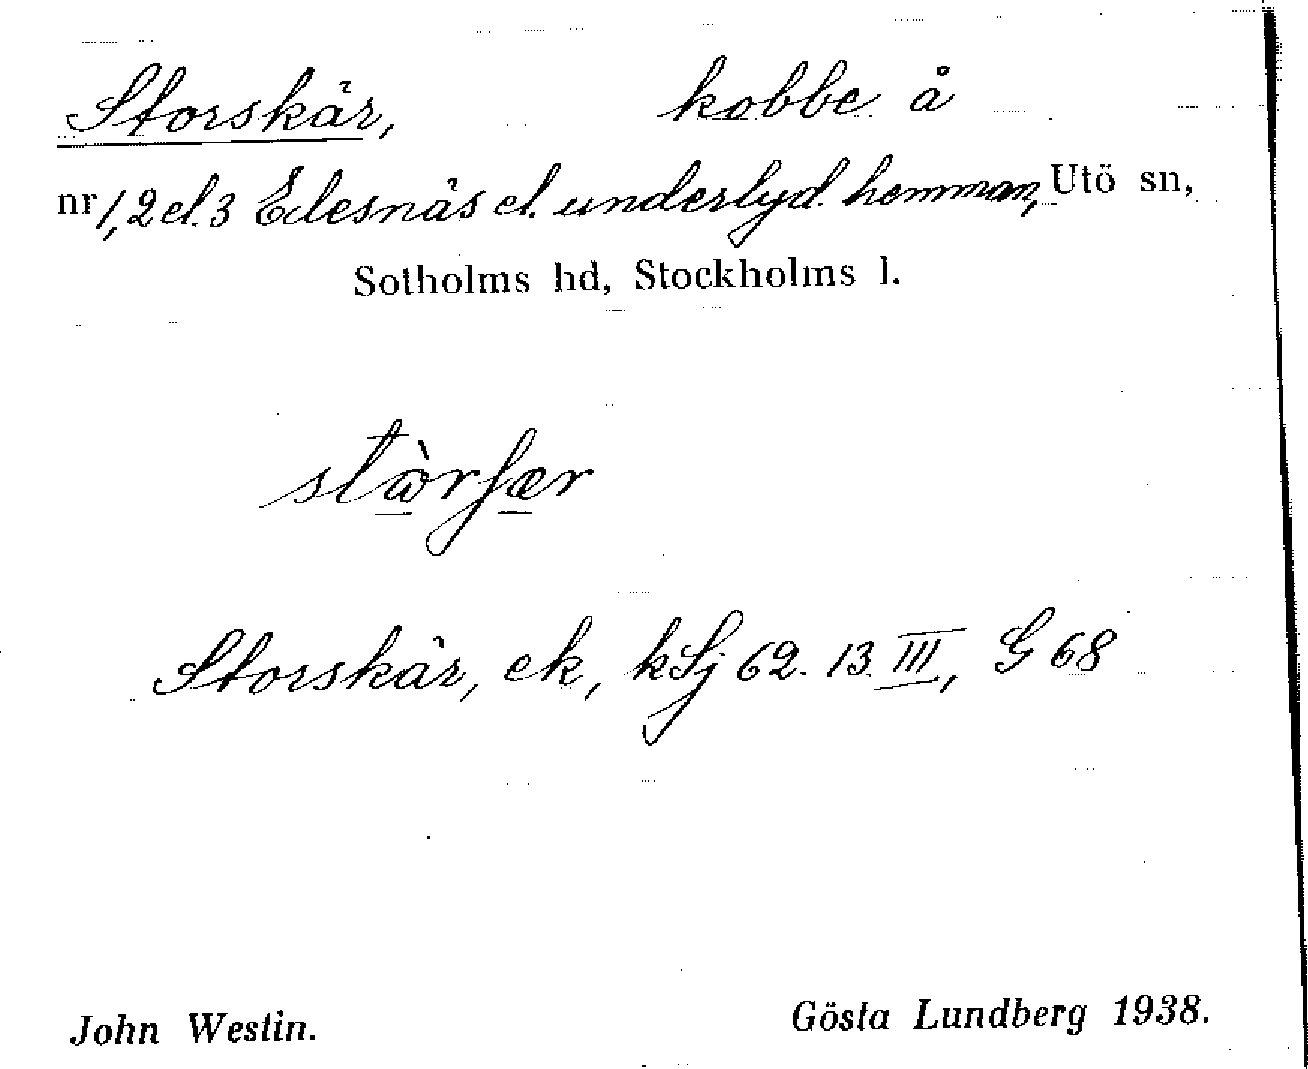 Storskär, kobbe å
nr 1, 2 el. 3 Edesnäs el. underlyd. hemman, Utö sn,
Sotholms hd, Stockholms l.
stòrſær
Storskär, ek, kSj 62. 13. III, G 68
John Westin. Gösta Lundberg 1938.